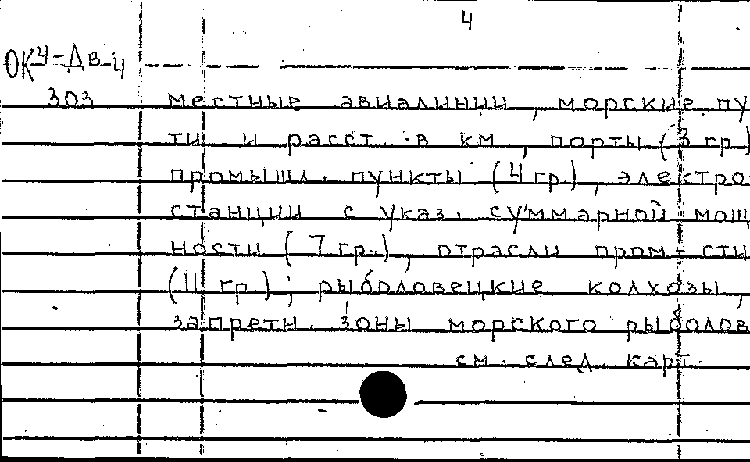 4
ОК4-Дв-4
303
местные авиалинии, морские пу
ти и расст. в км, порты (3 гр.)
промышл. пункты (4 гр.), электро
станции с указ. суммарной мощ
ности (7 гр.), отрасли пром-сти
(11 гр.); рыболовецкие колхозы,
запретн. зоны морского рыболов
см. след. карт.